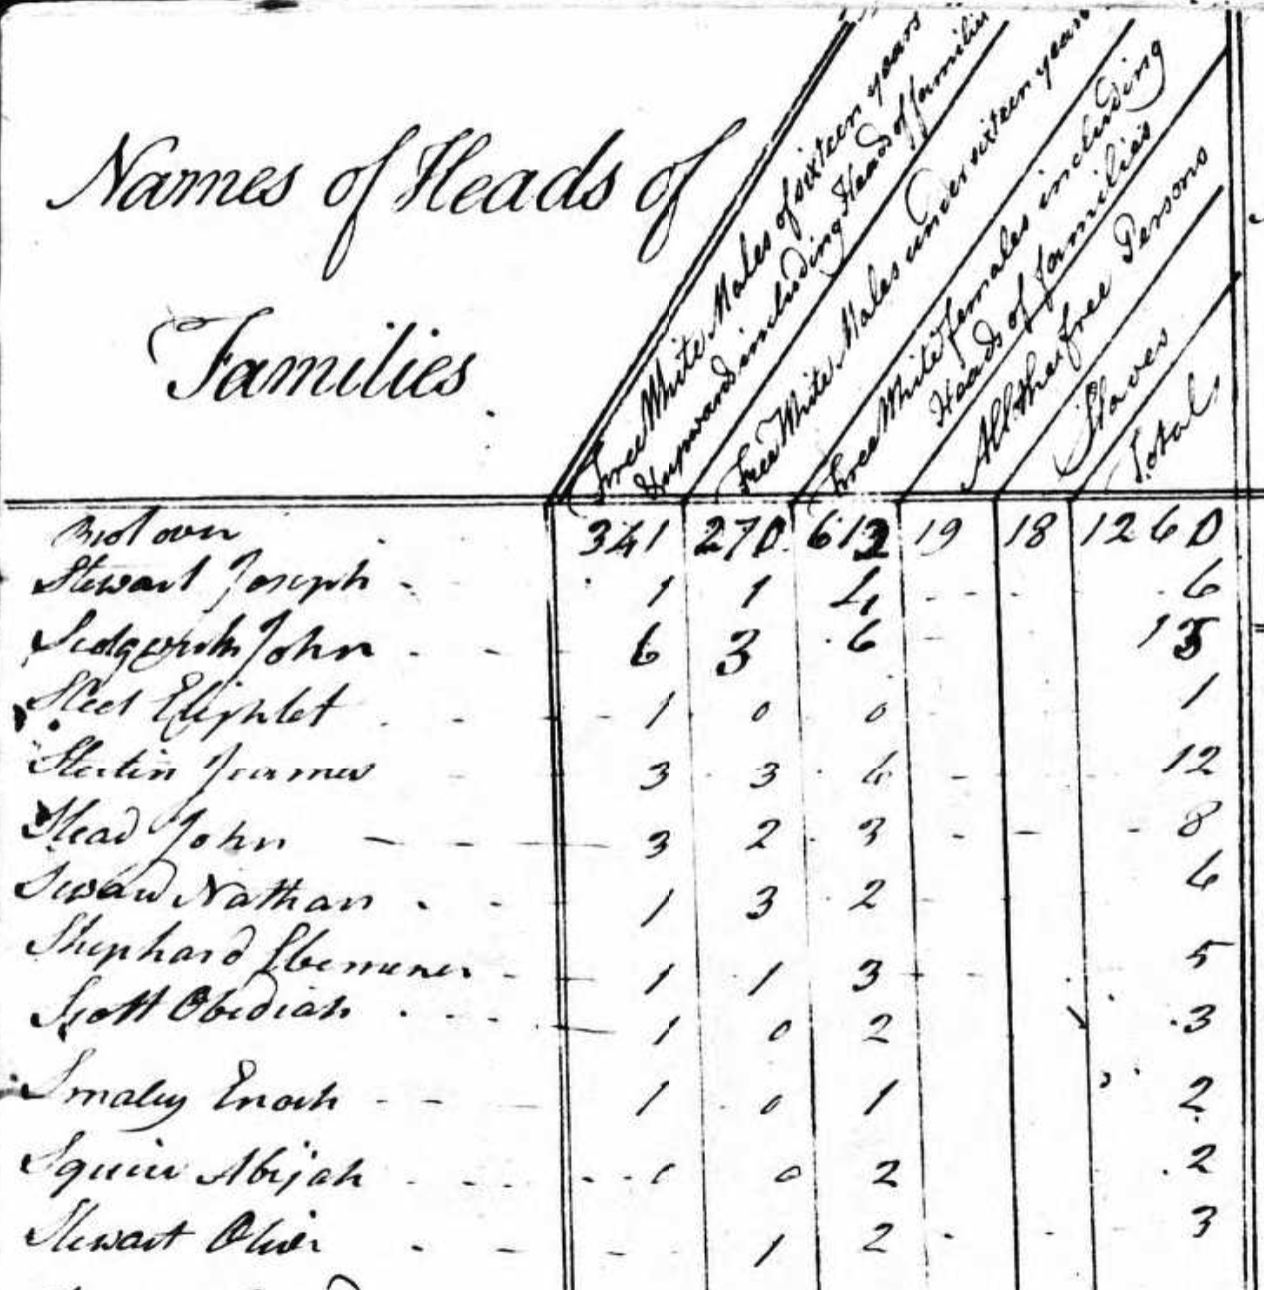 Names of Heads of
Families
Free White Males of sixteen years
& upward including Heads of families
Free White Males under sixteen years
Free White females including
Heads of families
All other free Persons
Slaves
Total
Brot over 341 270 612 19 18 1260
Stewart Joseph 1 1 4 6
Sedgwick John 6 3 6 15
Steel Eliphlet 1 0 0 1
James 3 3 6 12
Stead John 3 2 3 8
Seward Nathan 1 3 2 6
Shephard Ebenezer 1 1 3 5
Scott Obediah 1 0 2 3
Smaley Enoch 1 0 1 2
Squier Abijah 0 0 2 2
Stewart Oliver 1 2 3